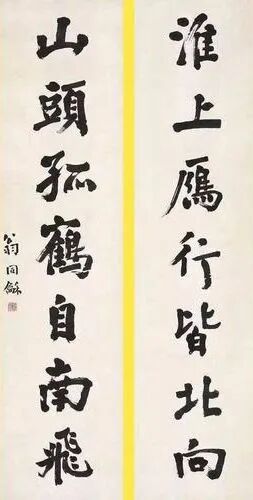 淮上雁行皆北向
山頭孤鶴自南飛
翁同龢